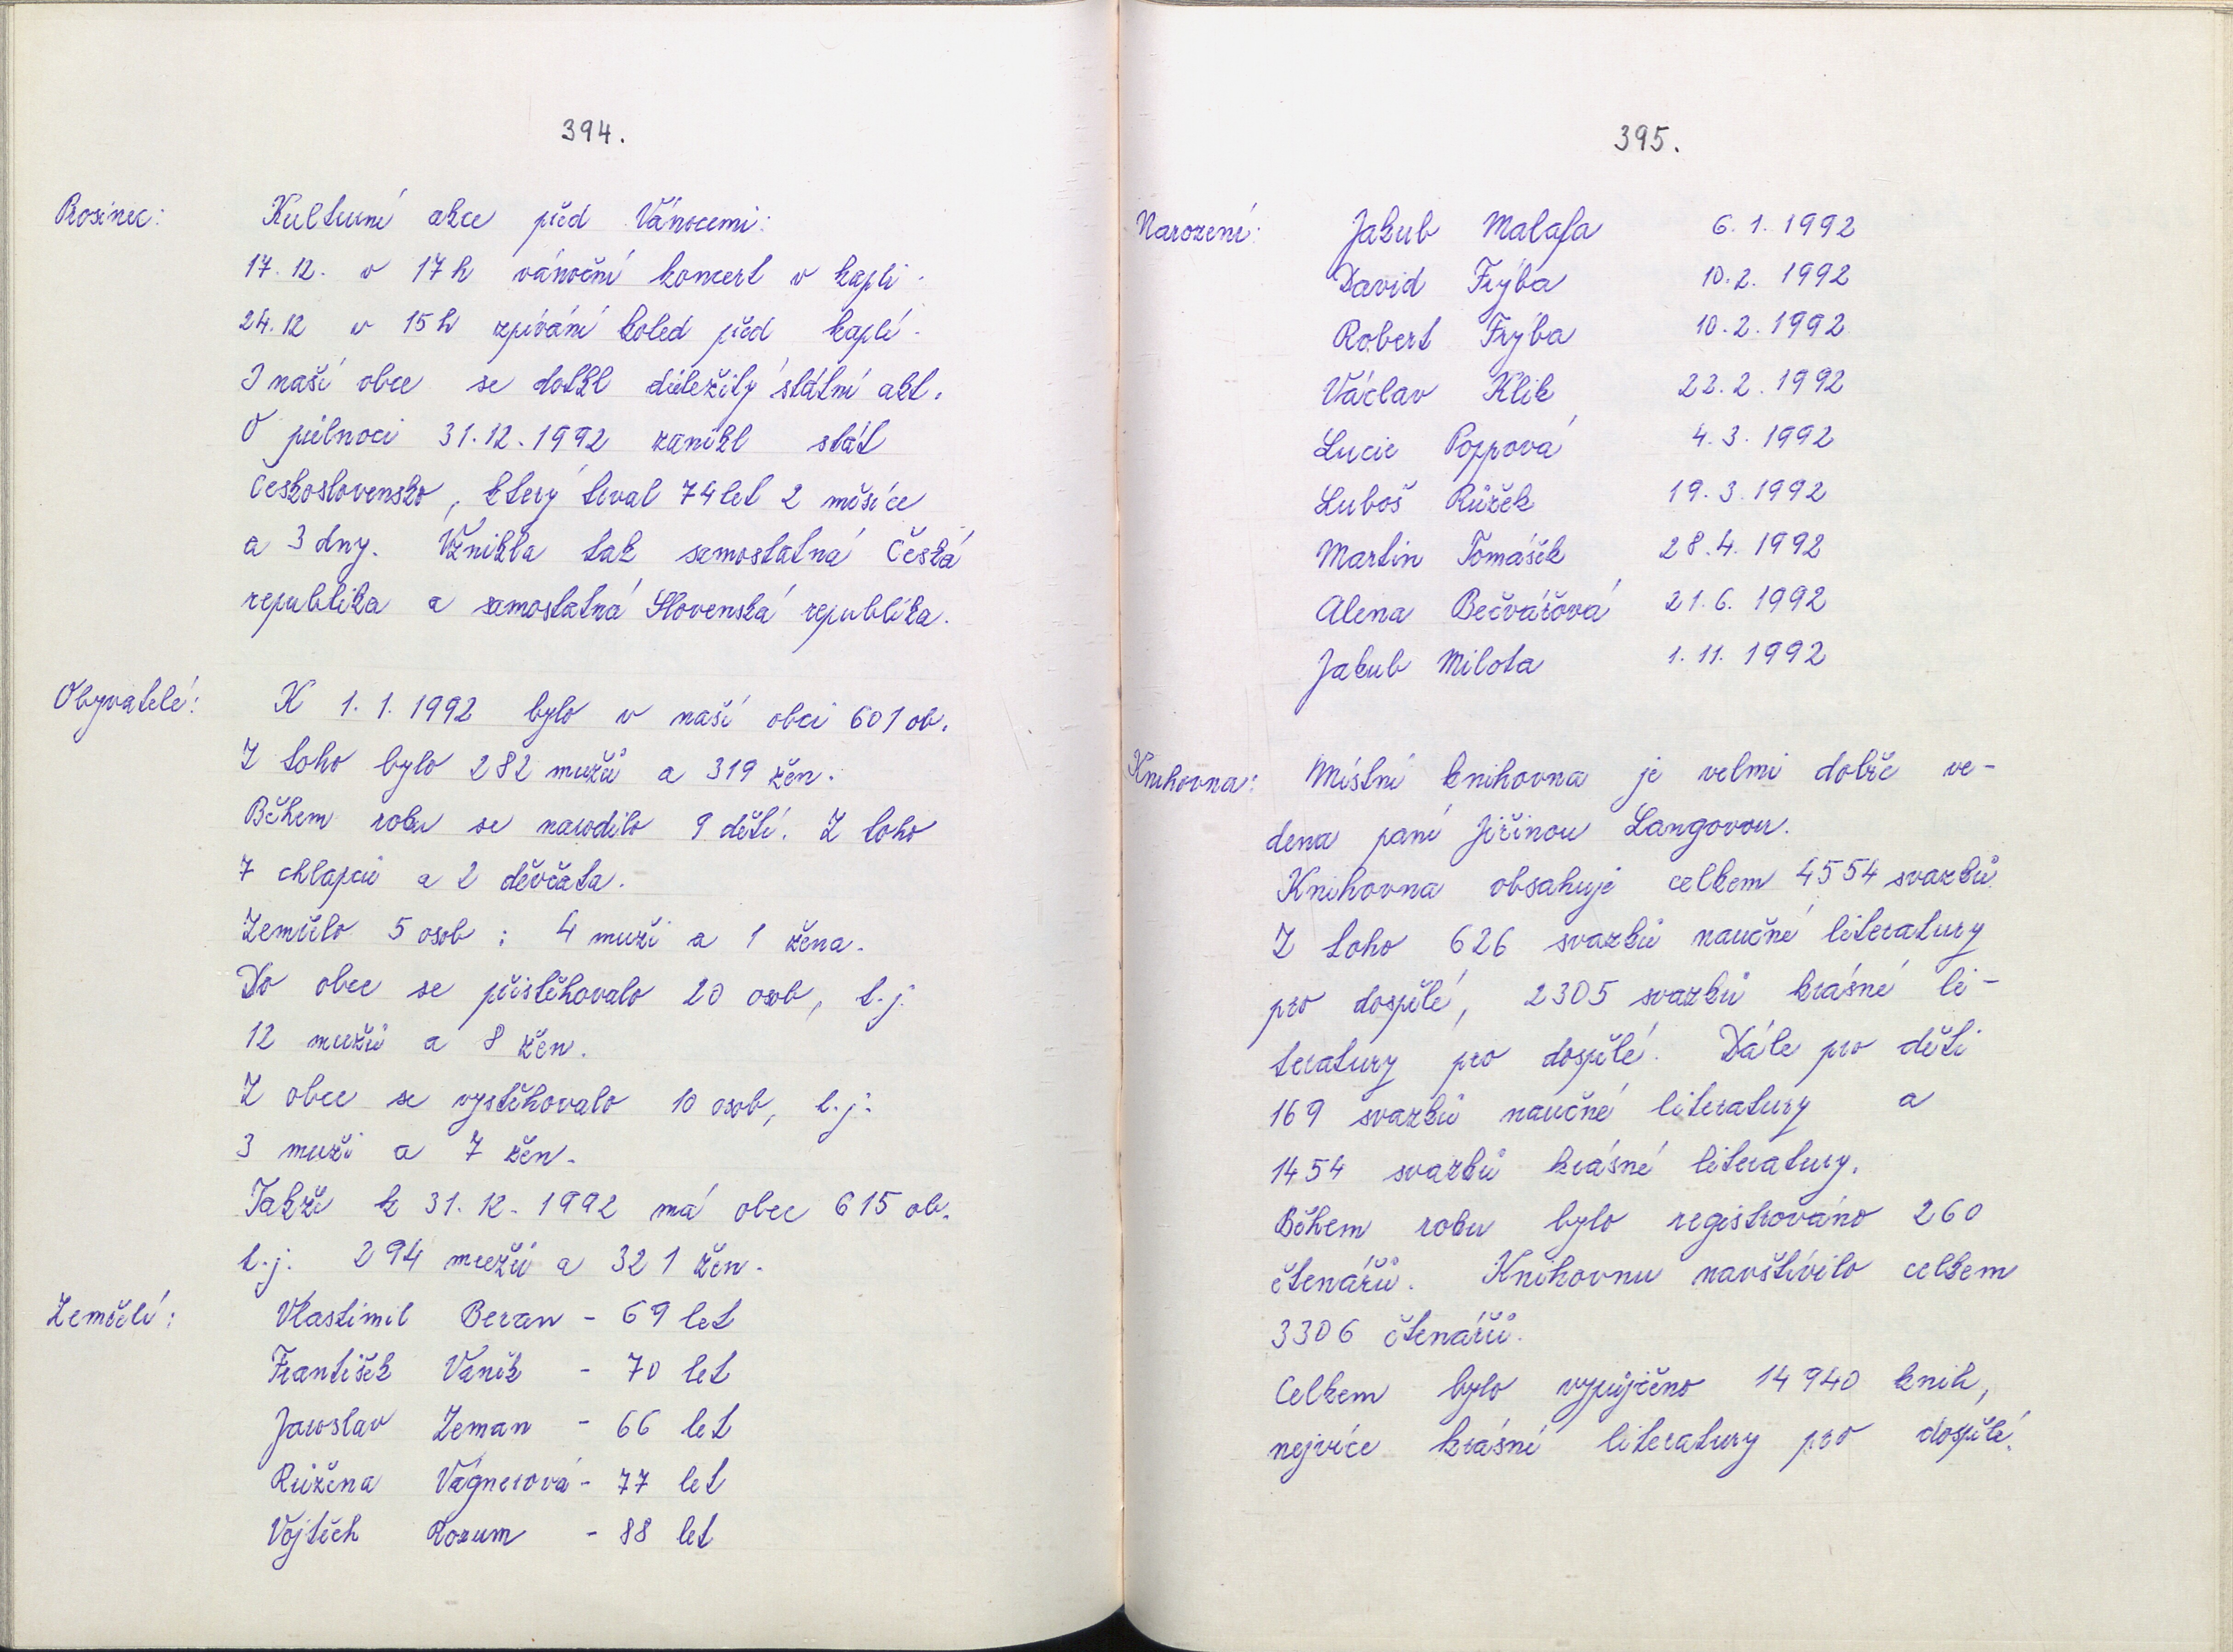 394.
Prosinec: Kulturní akce před Vánocemi:
17.12. v 17 h vánoční koncert v kapli.
24.12 v 15 h zpívání koled před kaplí.
I naší obce se dotkl důležitý státní akt.
O půlnoci 31.12.1992 zanikl stát
Československo, který trval 74 let 2 měsíce
a 3 dny. Vznikla tak samostatná Česká
republika a samostatná Slovenská republika.
Obyvatelé: K 1.1.1992 bylo v naší obci 601 ob.
Z toho bylo 282 mužů a 319 žen.
Během roku se narodilo 9 dětí. Z toho
7 chlapců a 2 děvčata.
Zemřelo 5 osob : 4 muži a 1 žena.
Do obce se přistěhovalo 20 osob, t.j.
12 mužů a 8 žen.
Z obce se vystěhovalo 10 osob, t.j.
3 muži a 7 žen.
Takže k 31.12.1992 má obec 615 ob.
t.j. 294 mužů a 321 žen.
Zemřelí: Vlastimil Beran - 69 let
František Vaněk - 70 let
Jaroslav Zeman - 66 let
Růžena Vágnerová - 77 let
Vojtěch Rozum - 88 let
395.
Narození: Jakub Malafa 6.1.1992
David Frýba 10.2.1992
Robert Frýba 10.2.1992
Václav Klik 22.2.1992
Lucie Poppová 4.3.1992
Luboš Růžek 19.3.1992
Martin Tomášek 28.4.1992
Alena Bečvářová 21.6.1992
Jakub Milota 1.11.1992
Knihovna: Místní knihovna je velmi dobře ve-
dena paní Jiřinou Langovou.
Knihovna obsahuje celkem 4554 svazků
Z toho 626 svazků naučné literatury
pro dospělé, 2305 svazků krásné li-
teratury pro dospělé. Dále pro děti
169 svazků naučné literatury a
1454 svazků krásné literatury.
Během roku bylo registrováno 260
čtenářů. Knihovnu navštívilo celkem
3306 čtenářů.
Celkem bylo vypůjčeno 14940 knih,
nejvíce krásné literatury pro dospělé.